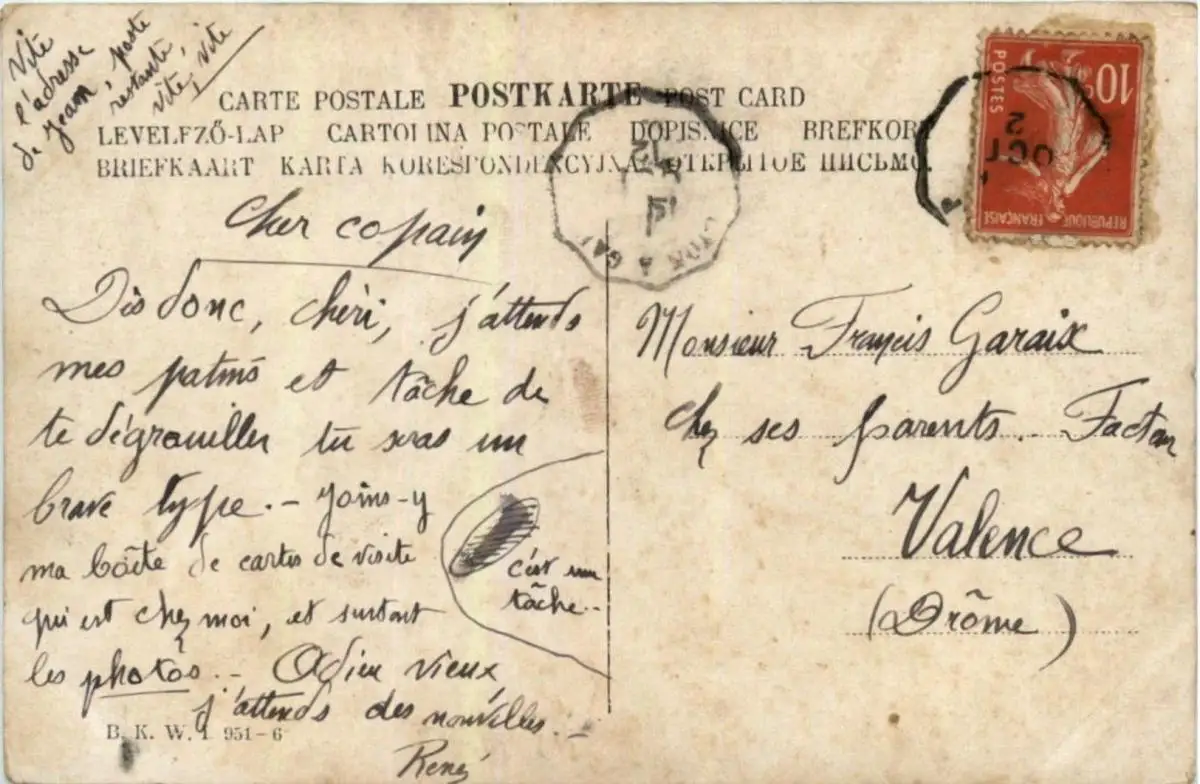 Vite
l'adresse
de Jean, poste
restante,
vite, vite
CARTE POSTALE POSTKARTE POST CARD
LEVELEZŐ-LAP CARTOLINA POSTALE DOPISNICE BREFKORT
BRIEFKAART KARTA KORESPONDENCYJNA ОТКРЫТОЕ ПИСЬМО.
10c
POSTES
REPUBLIQUE FRANÇAISE
OCT
2
Cher copain
Dis donc, chéri, j'attends
mes patins et tâche de
te dégrouiller tu seras un
brave type. - Joins-y
ma boîte de cartes de visite
qui est chez moi, et surtout
les photos. - Adieu vieux
j'attends des nouvelles. -
René
c'est une
tâche..
Monsieur Francis Garaix
chez ses parents. Facteur
Valence
(Drôme)
B. K. W. I. 951-6